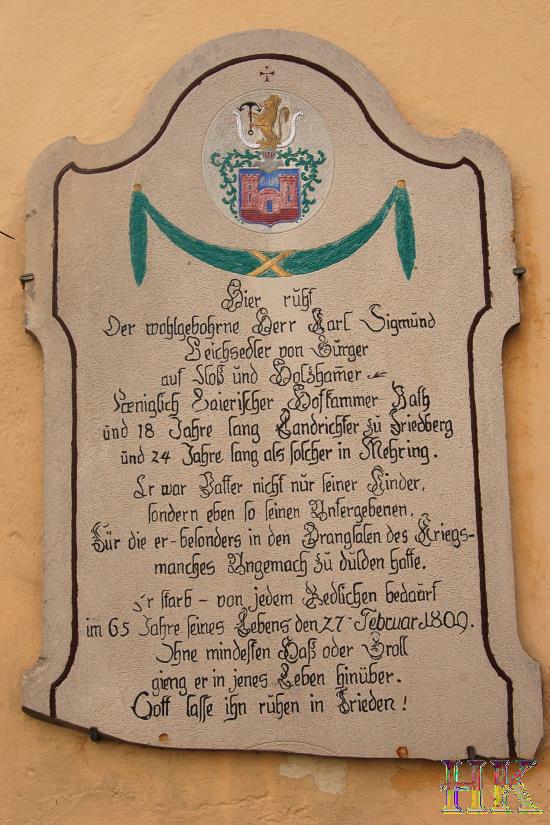 Hier ruht
Der wohlgebohrne Herr Karl Sigmund
Reichsedler von Bürger
auf Floß und Holzham̄er
Kœniglich Baierischer Hofkammer Rath
und 18 Jahre lang Landrichter zu Friedberg
und 24 Jahre lang als solcher in Mehring.
Er war Vatter nicht nur seiner Kinder,
sondern eben so seinen Untergebenen,
Für die er-besonders in den Drangsalen des Kriegs-
manches Ungemach zu dulden hatte.
Er starb - von jedem Redlichen bedaurt
im 65 Jahre seines Lebens den 27 Februar 1809.
Ohne mindesten Haß oder Groll
gieng er in jenes Leben hinüber.
Gott lasse ihn ruhen in Frieden!
HK